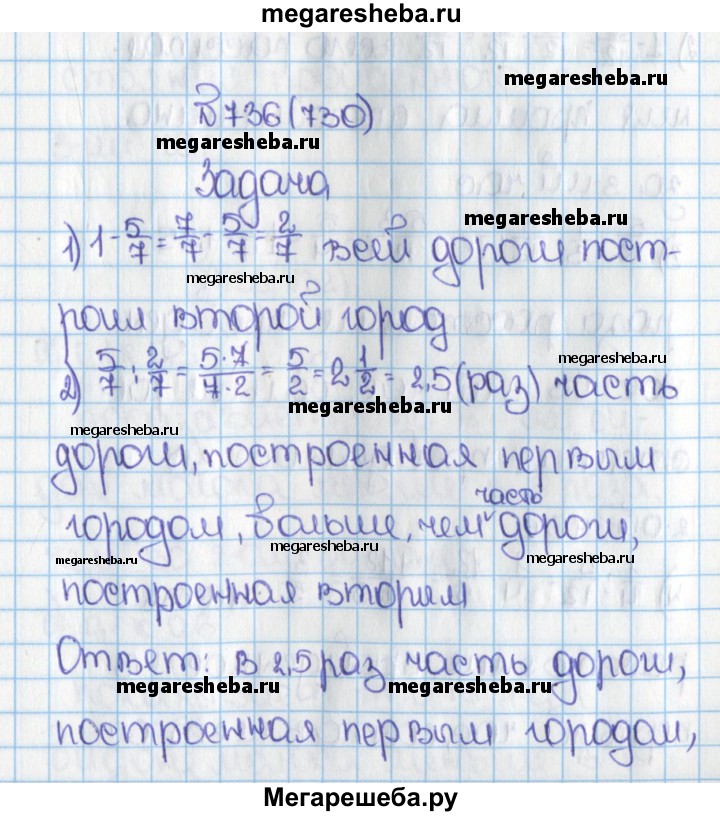 megaresheba.ru
megaresheba.ru
№736(730)
megaresheba.ru
Задача
megaresheba.ru
1) 1-5/7=7/7-5/7=2/7 всей дороги пост-
megaresheba.ru
роил второй город
megaresheba.ru
2) 5/7:2/7=5·7/7·2=5/2=2 1/2=2,5(раз) часть
megaresheba.ru
megaresheba.ru
дороги, построенная первым
часть
городом, больше, чем дороги,
megaresheba.ru
megaresheba.ru
megaresheba.ru
построенная вторым
Ответ: в 2,5 раз часть дороги,
megaresheba.ru
megaresheba.ru
построенная первым городом,
Мегарешеба.ру